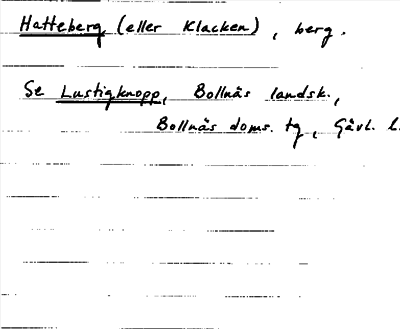 Hatteberg (eller Klacken), berg.
Se Lustigknopp, Bollnäs landsk.,
Bollnäs doms. tg, Gävl. l.